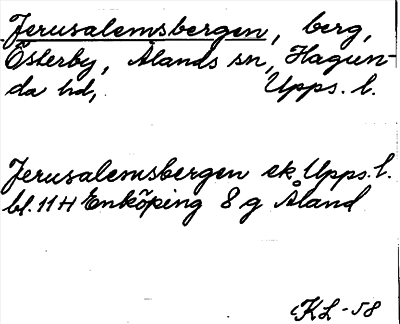 Jerusalemsbergen, berg,
Österby, Ålands sn, Hagun-
da hd, Upps. l.
Jerusalemsbergen ek Upps. l.
bl. 11 H Enköping 8 g Åland
KL -58